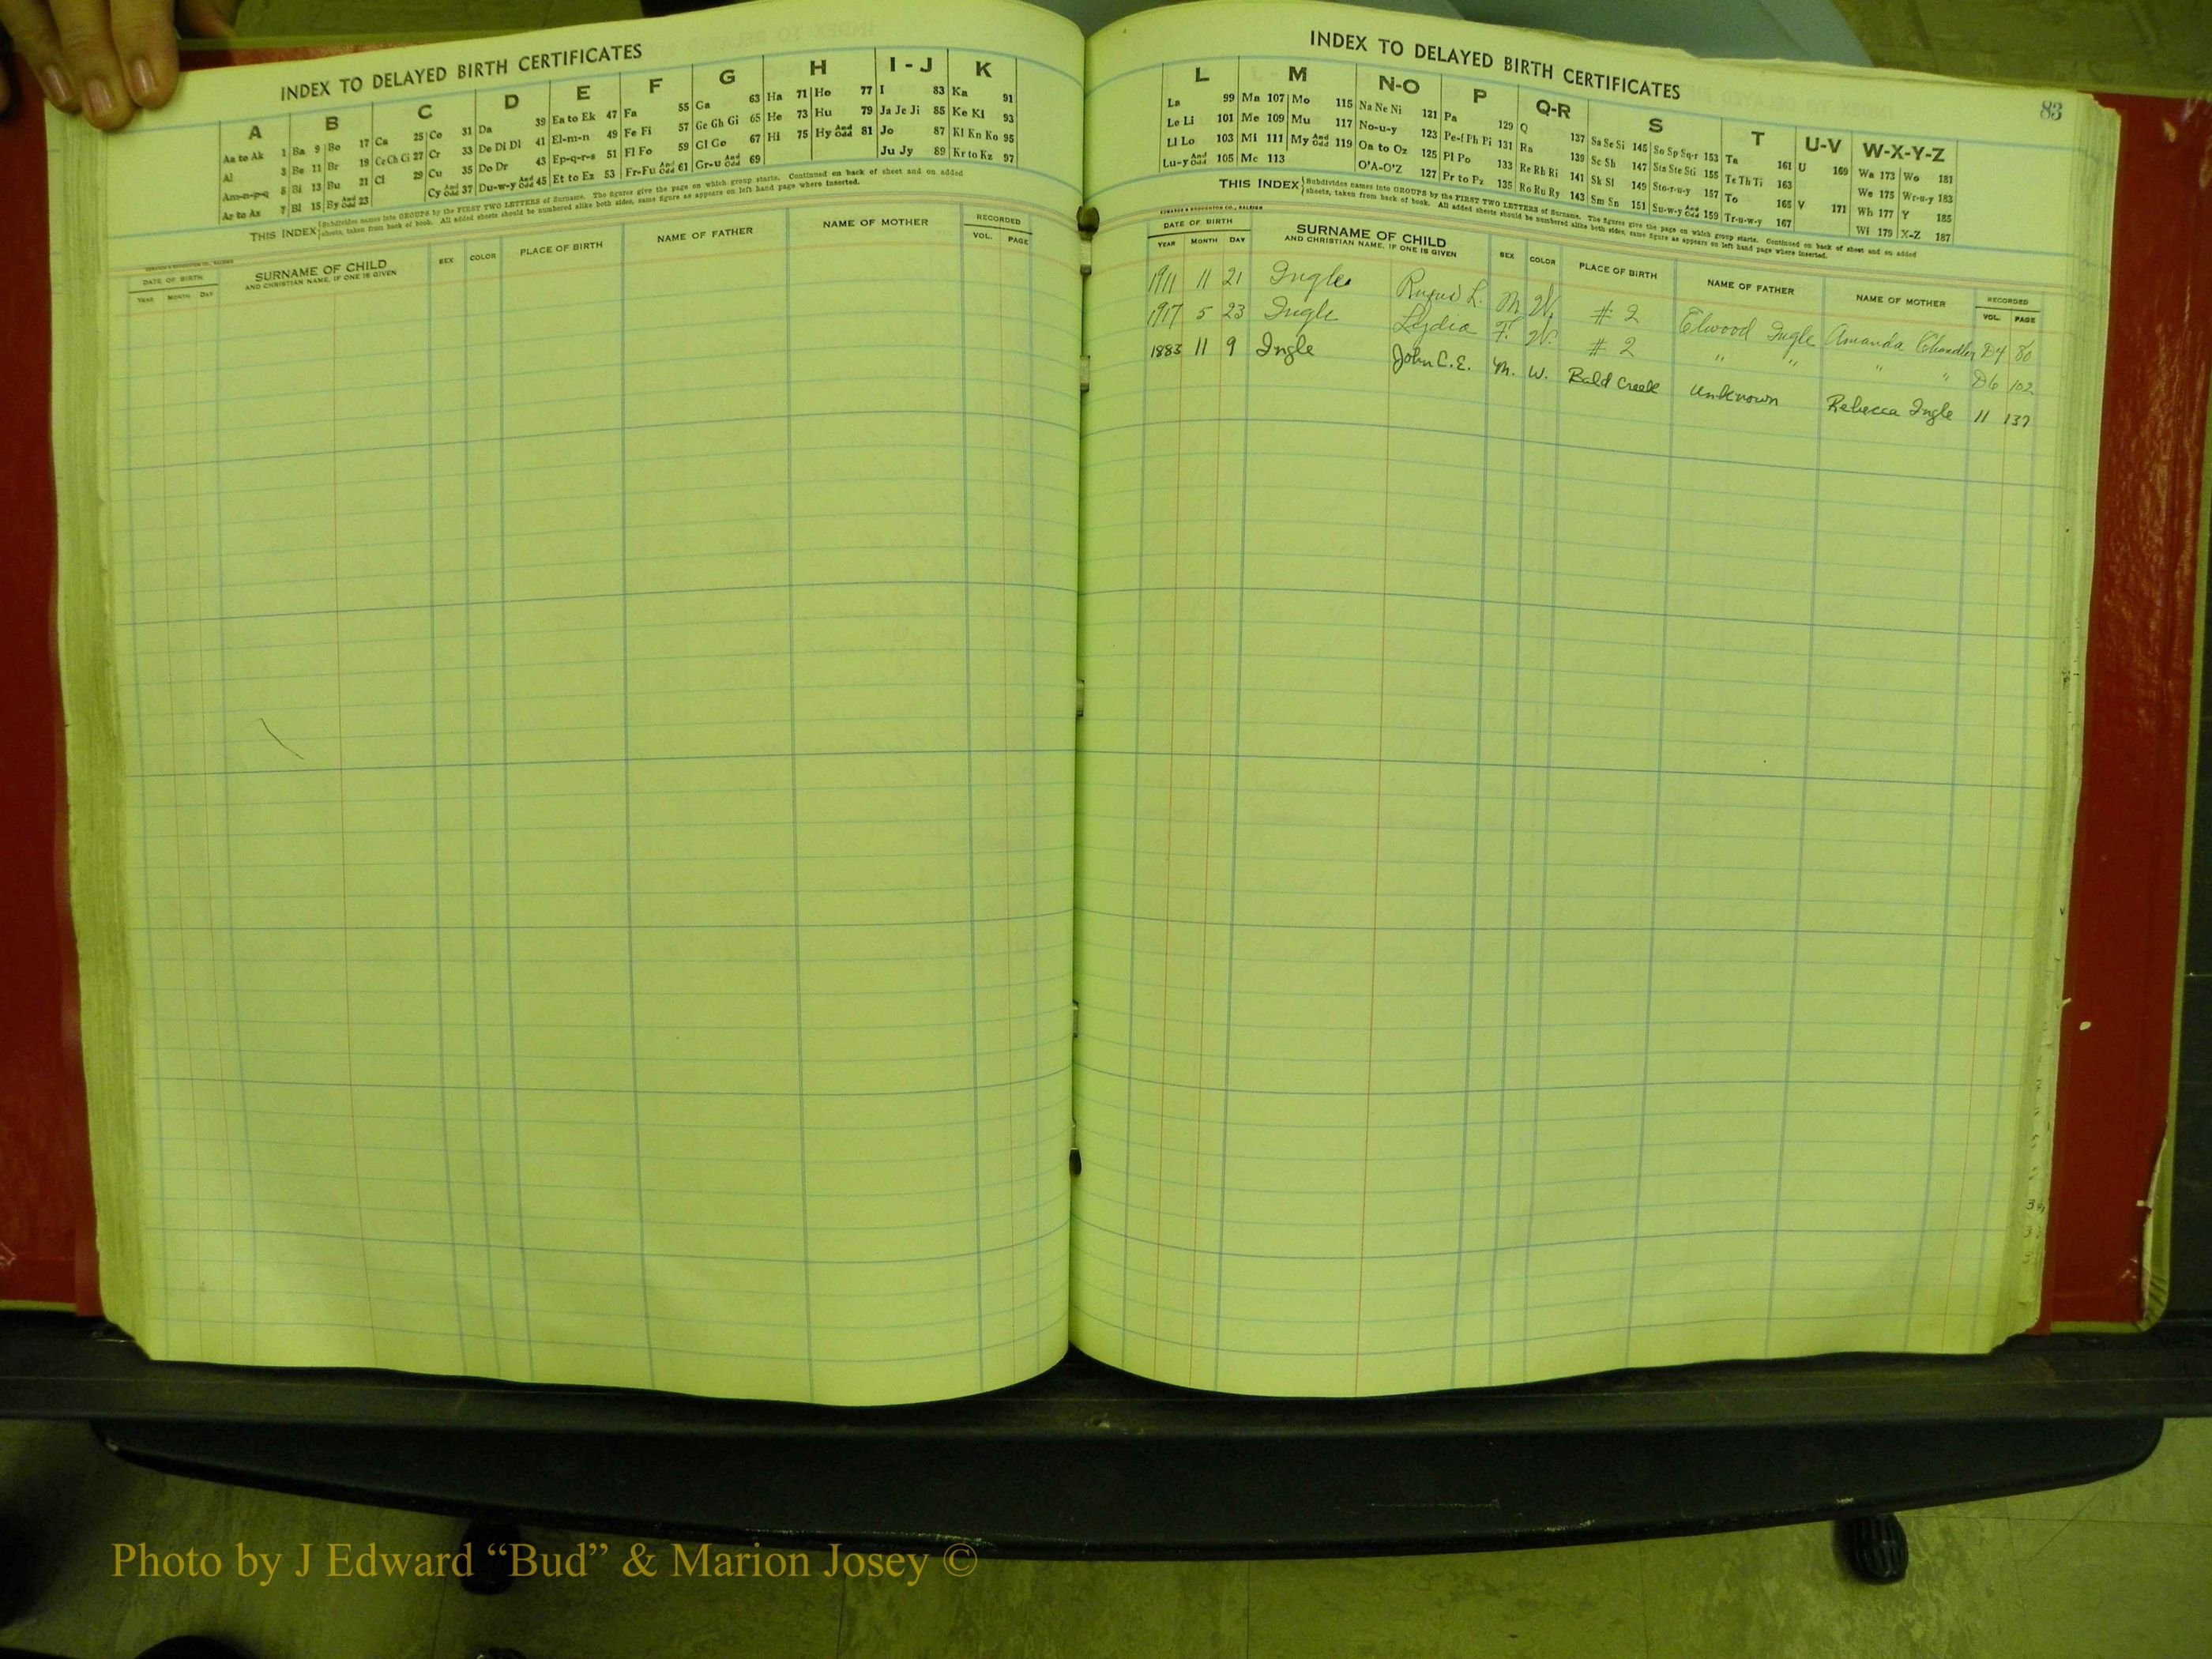 INDEX TO DELAYED BIRTH CERTIFICATES
A B C D E F G H I - J K
Aa to Ak 1 Ba 9 Bo 17 Ca 25 Co 31 Da 39 Ea to Ek 47 Fa 55 Ga 63 Ha 71 Ho 77 I 83 Ka 91
Al 3 Be 11 Br 19 Ce Ch Ci 27 Cr 33 De Di Dl 41 El-m-n 49 Fe Fi 57 Ge Gh Gi 65 He 73 Hu 79 Ja Je Ji 85 Ke Ki 93
Am-n-p-q 5 Bi 13 Bu 21 Cl 29 Cu 35 Do Dr 43 Ep-q-r-s 51 Fl Fo 59 Gl Go 67 Hi 75 Hy And Odd 81 Jo 87 Kl Kn Ko 95
Ar to Az 7 Bl 15 By And Odd 23 Cy And Odd 37 Du-w-y And Odd 45 Et to Ez 53 Fr-Fu And Odd 61 Gr-u And Odd 69 Ju Jy 89 Kr to Kz 97
THIS INDEX Subdivides names into GROUPS by the FIRST TWO LETTERS of Surname. The figures give the page on which group starts. Continued on back of sheet and on added
sheets, taken from back of book. All added sheets should be numbered alike both sides, same figure as appears on left hand page where inserted.
EDWARDS & BROUGHTON CO., RALEIGH
DATE OF BIRTH SURNAME OF CHILD SEX COLOR PLACE OF BIRTH NAME OF FATHER NAME OF MOTHER RECORDED
YEAR MONTH DAY AND CHRISTIAN NAME, IF ONE IS GIVEN VOL. PAGE
INDEX TO DELAYED BIRTH CERTIFICATES
83
L M N-O P Q-R S T U-V W-X-Y-Z
La 99 Ma 107 Mo 115 Na Ne Ni 121 Pa 129 Q 137 Sa Se Si 145 So Sp Sq-r 153 Ta 161 U 169 Wa 173 Wo 181
Le Li 101 Me 109 Mu 117 No-u-y 123 Pe-f Ph Pi 131 Ra 139 Sc Sh 147 Sta Ste Sti 155 Te Th Ti 163 We 175 Wr-u-y 183
Ll Lo 103 Mi 111 My And Odd 119 Oa to Oz 125 Pl Po 133 Re Rh Ri 141 Sk Sl 149 Sto-r-u-y 157 To 165 V 171 Wh 177 Y 185
Lu-y And Odd 105 Mc 113 O'A-O'Z 127 Pr to Pz 135 Ro Ru Ry 143 Sm Sn 151 Su-w-y And Odd 159 Tr-u-w-y 167 Wi 179 X-Z 187
THIS INDEX Subdivides names into GROUPS by the FIRST TWO LETTERS of Surname. The figures give the page on which group starts. Continued on back of sheet and on added
sheets, taken from back of book. All added sheets should be numbered alike both sides, same figure as appears on left hand page where inserted.
EDWARDS & BROUGHTON CO., RALEIGH
DATE OF BIRTH SURNAME OF CHILD SEX COLOR PLACE OF BIRTH NAME OF FATHER NAME OF MOTHER RECORDED
YEAR MONTH DAY AND CHRISTIAN NAME, IF ONE IS GIVEN VOL. PAGE
1911 11 21 Ingle Rufus L. M W. # 2 Elwood Ingle Amanda Chandler D4 80
1917 5 23 Ingle Lydia F. W. # 2 " " " " D6 102
1883 11 9 Ingle John C.E. M. W. Bald Creek Unknown Rebecca Ingle 11 137
Photo by J Edward “Bud” & Marion Josey ©